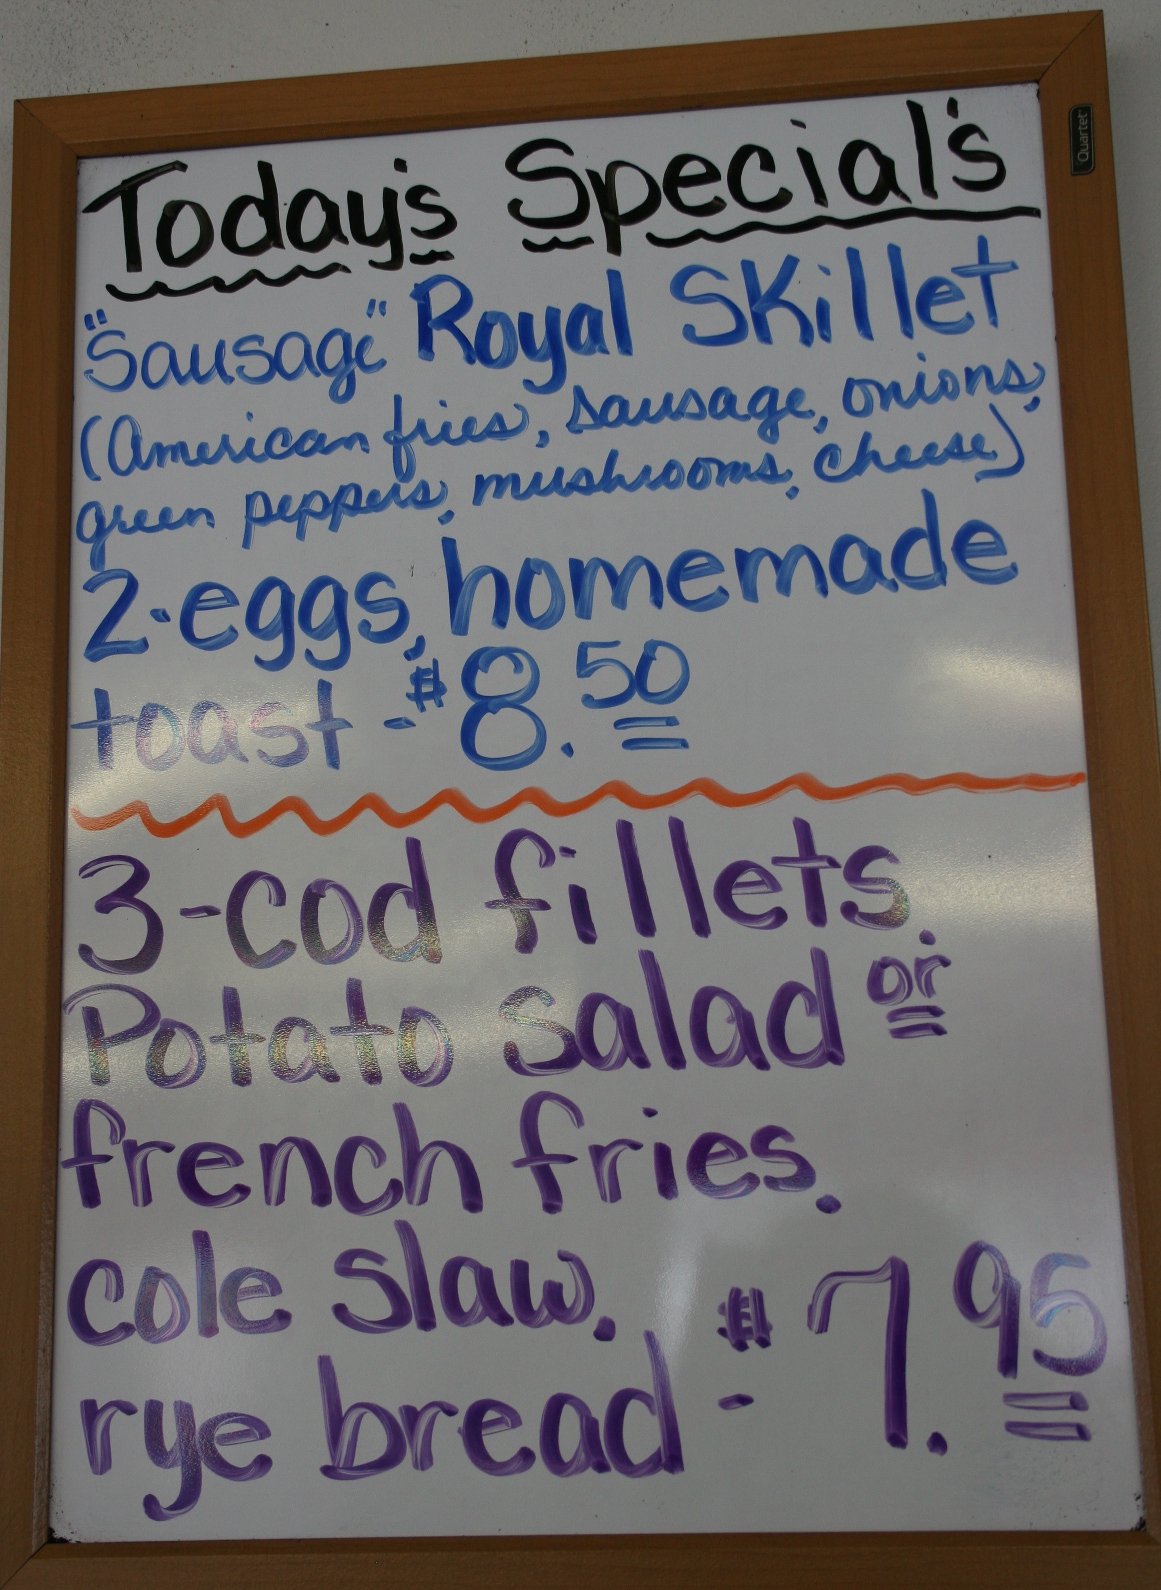 Today's Special's
"Sausage" Royal Skillet
(American fries, sausage, onions,
green peppers, mushrooms, cheese)
2-eggs, homemade
toast - $8.50
3-cod fillets.
Potato Salad or
french fries.
cole slaw.
rye bread - $7.95
Quartet